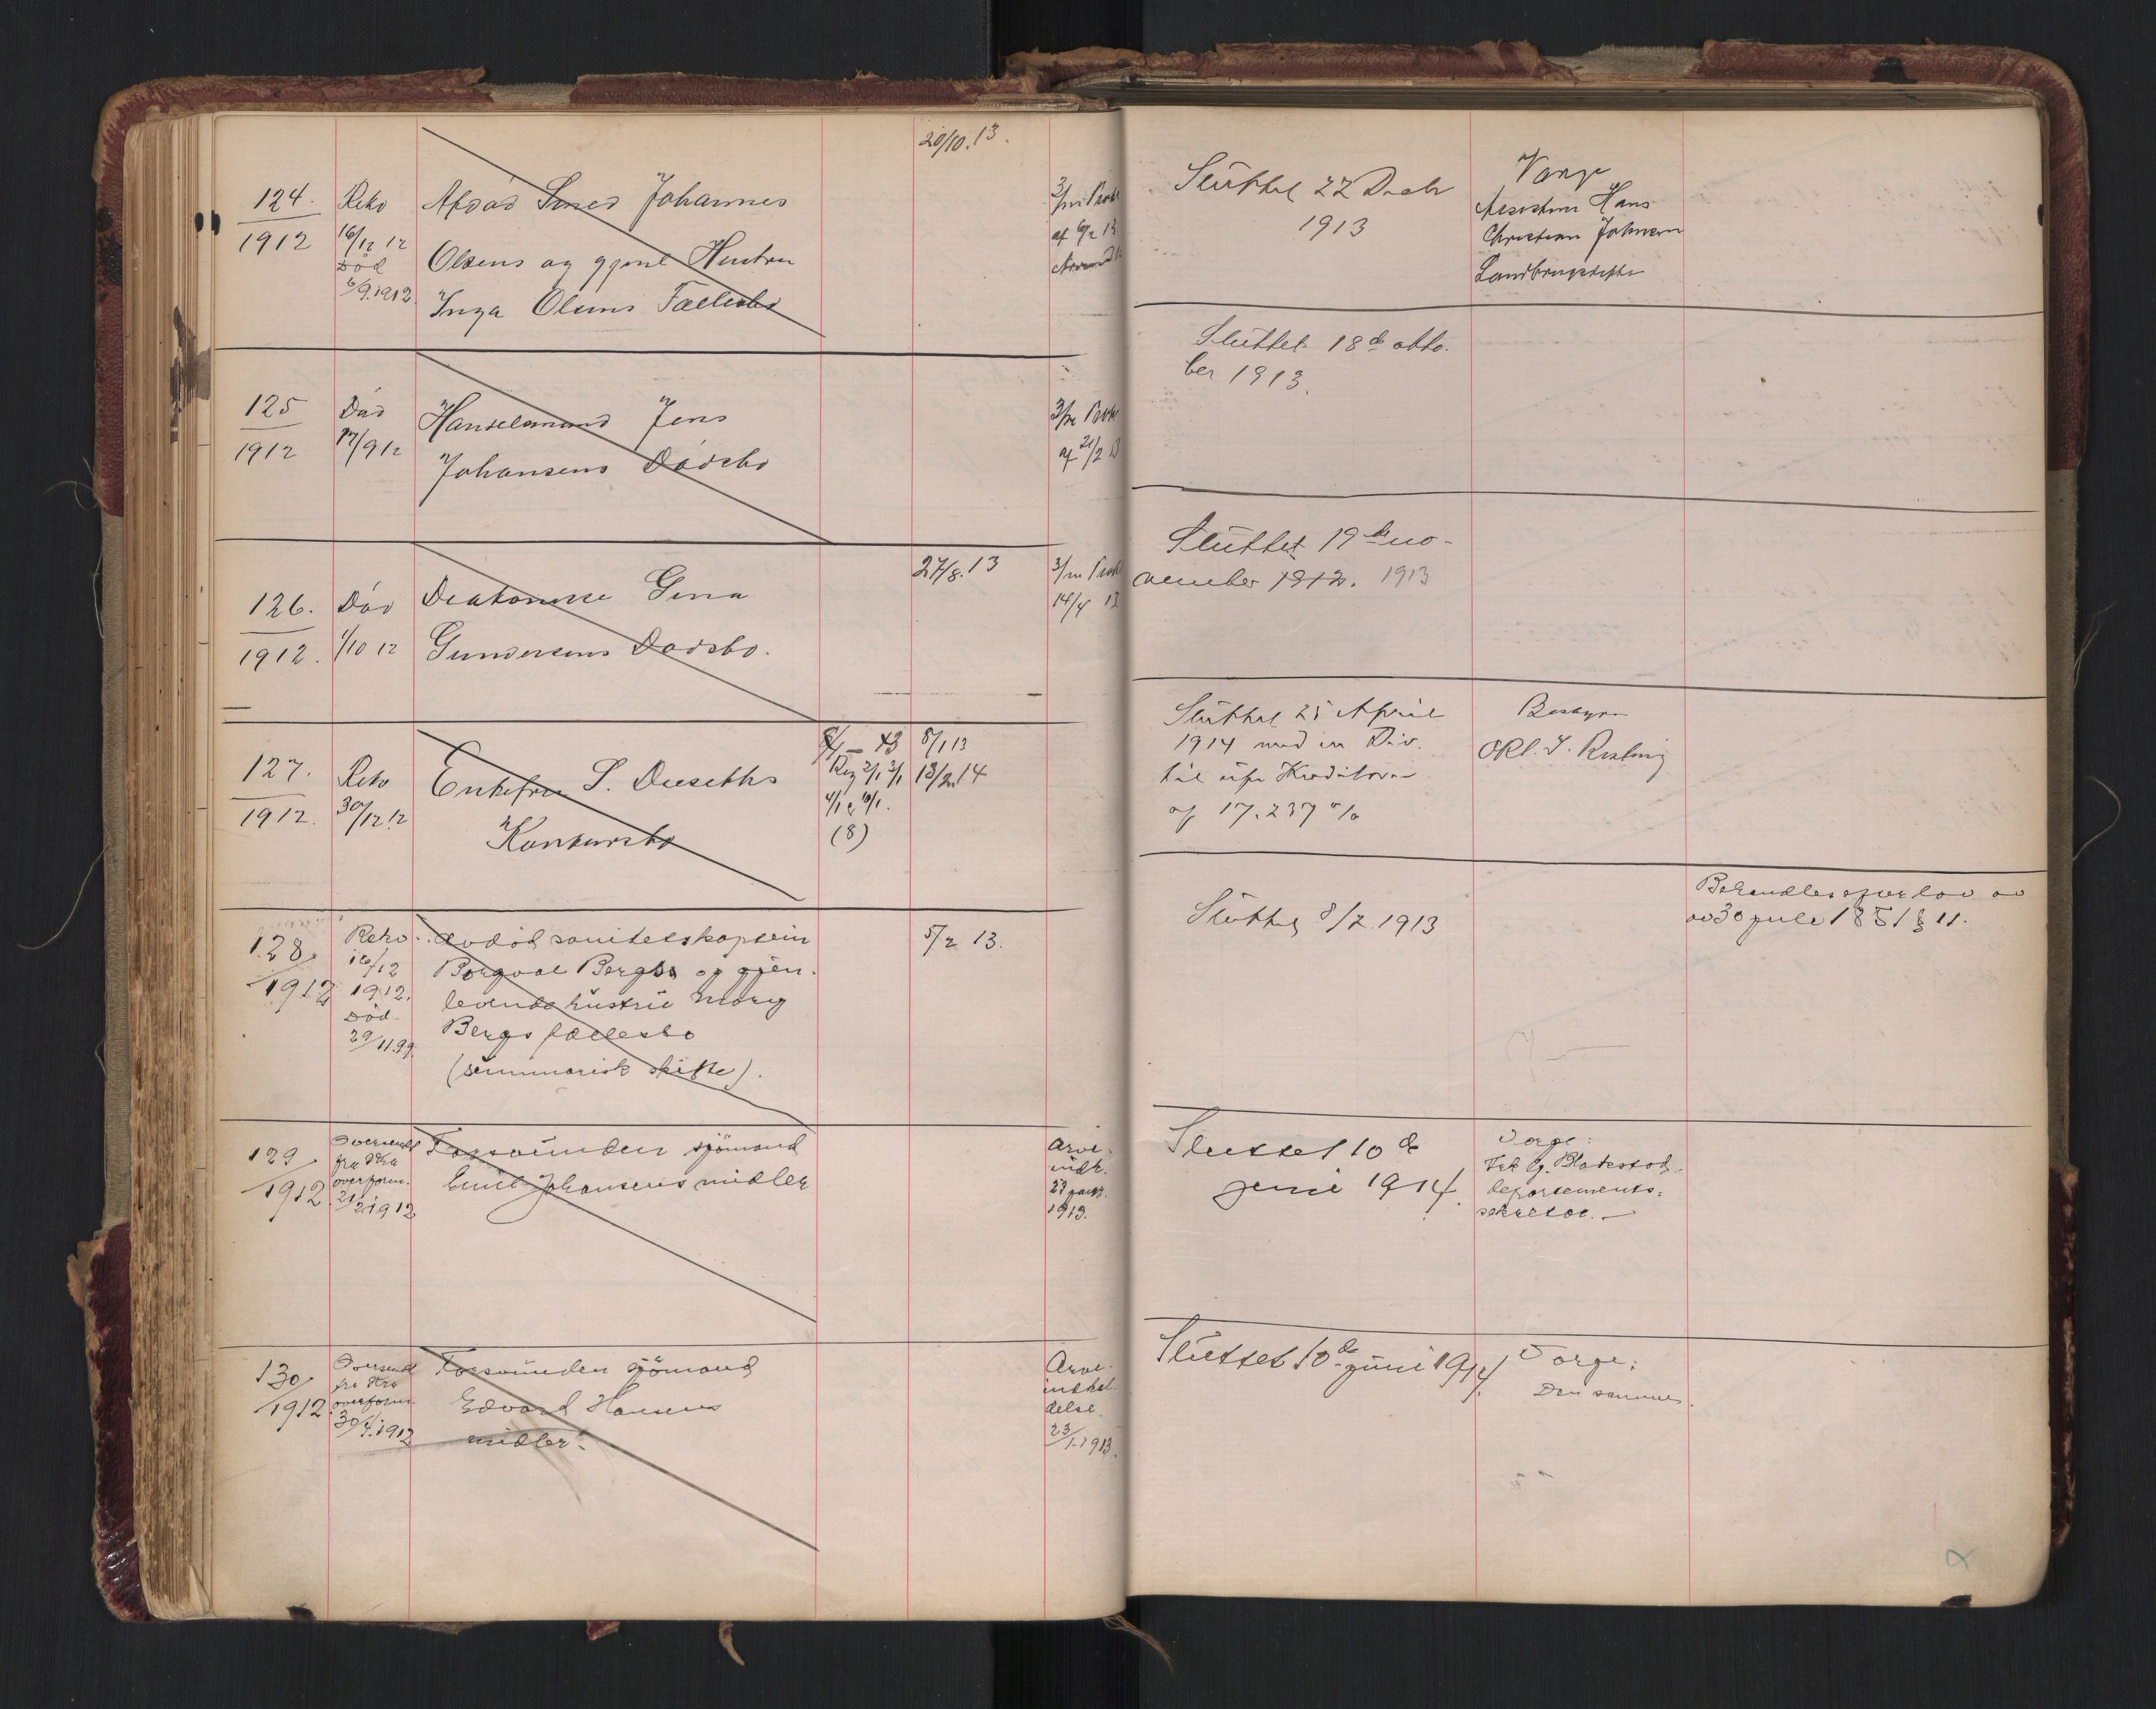 20/10.13.
124.
1912
Rekv
16/12 12
Död
6/9.1912
Afdød Smed Johannes
Olsens og gjenl Hustru
Inga Olsens Fællesbo
3/m Prokl
af
Sluttet 22 Decbr
1913
Verge
Assistent Hans
Christian Johnsen
Landbrugsdepte
125
1912
Død
17/9 12
Handelsmand Jens
Johansens Dødsbo
3/m Prokl
af 21/2 13
Sluttet 18de okto-
ber 1913.
126.
1912.
Død
1/10 12
Diakonisse Gina
Gundersens Dødsbo.
27/8.13
3/m Prokl
14/4 13
Sluttet 19de no-
vember 1912. 1913
127.
1912.
Rekv
30/12 12
Enkefru S. Duseths
Konkursbo
8/1 – 13
Reg 2/1 3/1
4/1 & 6/1.
(8)
8/1 13
13/2 14
Sluttet 25 April
1914 med en Div.
til ufr Kreditorer
af 17.237 %
Bestyrer
128
1912
Rekv.
16/12
1912.
Död
29/11.99
Avdöd sanitetskaptein
Borgvat Bergs og gjen-
levende hustru Mary
Bergs fællesbo
(summarisk skifte).
5/2 13.
Sluttet 8/2 1913
Behandles efter lov av
av 30 juli 1851 § 11.
129
1912
Oversendt
fra Kra
overform.
21/2 1912
Forsvunden sjömand
Emil Johansens midler
Arve-
indk.
23 jan
1913.
Sluttet 10de
juni 1914.
Verge:
departements-
sekretær.
130
1912
Oversendt
fra Kra
overform
30/4.1912
Forsvunden sjömand
Edvard Hansens
midler.
Arve-
indkal
delse
23/1-1913.
Sluttet 10de juni 1914.
Verge:
Den samme.